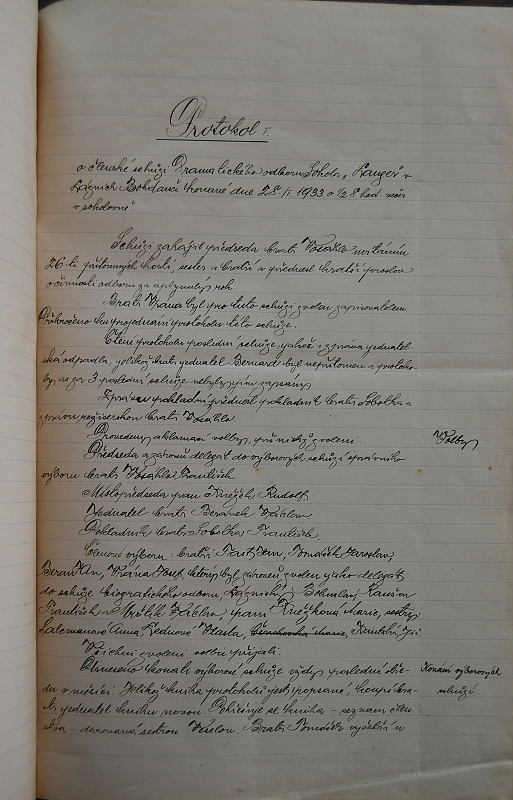 Protokol I.
o členské schůzi Dramatického odboru Sokola "Langer" v
Lázních Bohdanči konané dne 28./I. 1933 o ½ 8 hod. več.
v sokolovně
Schůzi zahájil předseda bratr Vosáhlo uvítáním
26 ti přítomných hostí, sester a bratří a přednesl kratší proslov
o činnosti odboru za uplynulý rok.
Bratr Vrána byl pro tuto schůzi zvolen zapisovatelem.
Přikročeno ku projednání protokolu této schůze.
Čtení protokolu poslední schůze, jakož i zpráva jednatel-
ská odpadla, jelikož bratr jednatel Bernard byl nepřítomen a protoko-
ly, as za 3 poslední schůze nebyly jím zapsány.
Zprávu pokladní přednesl pokladník bratr Sobotka a
zprávu režisérskou bratr Vosáhlo
Provedeny aklamací volby, při nichž zvoleni:
Volby
Předseda a zároveň delegát do výborových schůzí správního
výboru bratr Vosáhlo František
Místopředseda pan Knejch Rudolf
Jednatel bratr Beránek Václav
Pokladník bratr Sobotka František,
Členové výboru: bratři Jan, Tomášek Jaroslav,
Beran Jan, Vrána Josef, který byl zároveň zvolen jako delegát
do schůze biografického odboru, Bohuslav,
František a Václav, paní Marie, sestry
Salamanová Anna, Vlasta, Marie,
Všichni zvolení volbu přijali.
Usneseno konati výborové schůze vždy poslední stře-
Konání výborových
du v měsíci. Jelikož kniha protokolů jest popsána, koupí bra-
schůzí.
tr jednatel knihu novou. Pohřešuje se kniha - seznam člen-
stva - darovaná sestrou Veselou. Bratr Tomášek vyšetří u